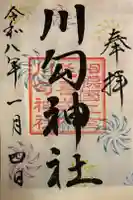 奉拝
川勾神社
令和八年一月四日